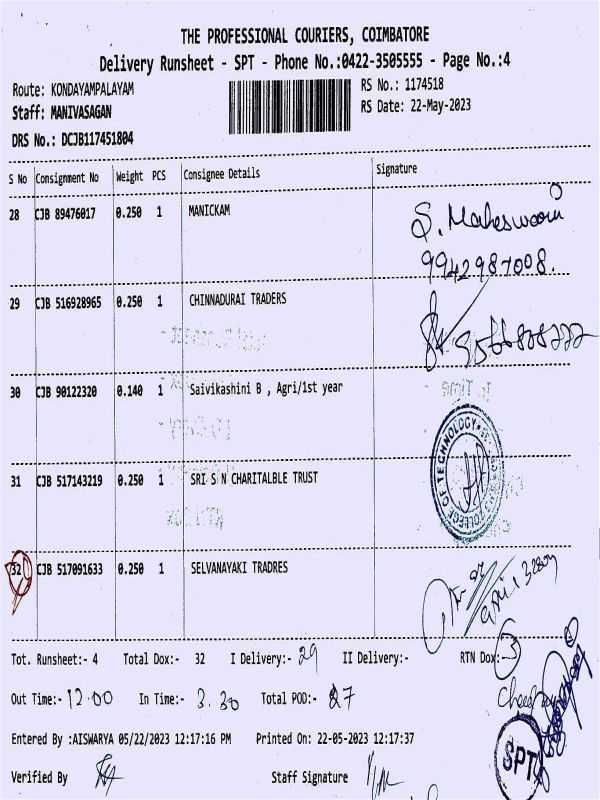 THE PROFESSIONAL COURIERS, COIMBATORE
Delivery Runsheet - SPT - Phone No.:0422-3505555 - Page No.:4
Route: KONDAYAMPALAYAM
RS No.: 1174518
Staff: MANIVASAGAN
RS Date: 22-May-2023
DRS No.: DCJB117451804
S No Consignment No Weight PCS Consignee Details Signature
28 CJB 89476017 0.250 1 MANICKAM S. Maheswari
9942987008.
29 CJB 516928965 0.250 1 CHINNADURAI TRADERS
30 CJB 90122320 0.140 1 Saivikashini B , Agri/1st year
31 CJB 517143219 0.250 1 SRI S N CHARITALBLE TRUST
COLLEGE OF TECHNOLOGY
32 CJB 517091633 0.250 1 SELVANAYAKI TRADRES
Tot. Runsheet:- 4 Total Dox:- 32 I Delivery:- 29 II Delivery:- RTN Dox:- 3
Out Time:- 12.00 In Time:- 3.30 Total POD:- 27
Entered By :AISWARYA 05/22/2023 12:17:16 PM Printed On: 22-05-2023 12:17:37
SPT
Verified By Staff Signature